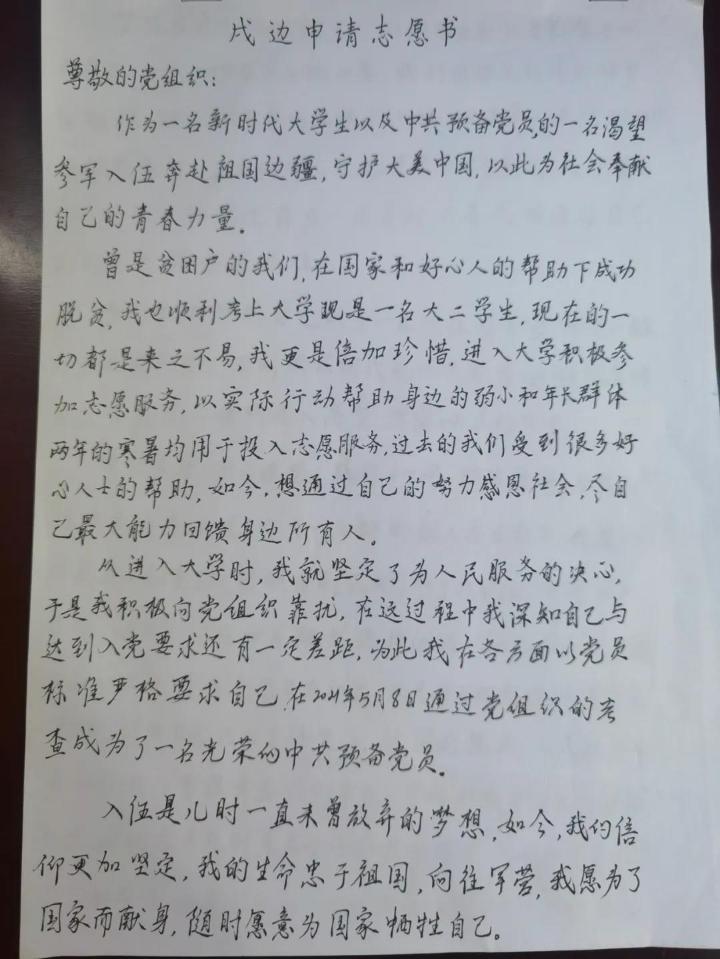 戍边申请志愿书
尊敬的党组织：
作为一名新时代大学生以及中共预备党员,的一名渴望
参军入伍奔赴祖国边疆,守护大美中国,以此为社会奉献
自己的青春力量。
曾是贫困户的我们,在国家和好心人的帮助下成功
脱贫,我也顺利考上大学现是一名大二学生,现在的一
切都是来之不易,我更是倍加珍惜,进入大学积极参
加志愿服务,以实际行动帮助身边的弱小和年长群体
两年的寒暑均用于投入志愿服务,过去的我们受到很多好
心人士的帮助,如今,想通过自己的努力感恩社会,尽自
己最大能力回馈身边所有人。
从进入大学时,我就坚定了为人民服务的决心,
于是我积极向党组织靠扰,在这过程中我深知自己与
达到入党要求还有一定差距,为此我在各方面以党员
标准严格要求自己,在2021年5月8日通过党组织的考
查成为了一名光荣的中共预备党员。
入伍是儿时一直未曾放弃的梦想,如今,我的信
仰更加坚定,我的生命忠于祖国,向往军营,我愿为了
国家而献身,随时愿意为国家牺牲自己。